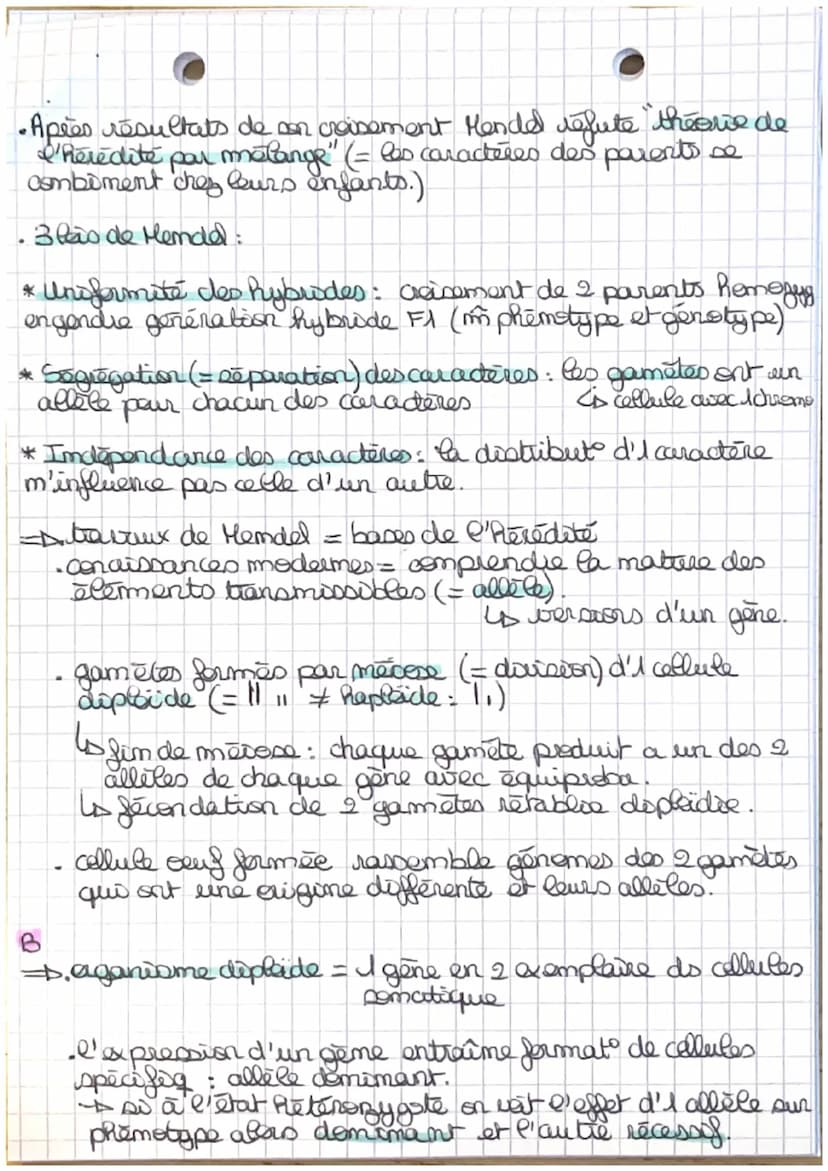 . Après résultats de son croisement Mendel réfute "théorie de
l'hérédité par mélange" (= les caractères des parents se
combinent chez leurs enfants.)
. 3 lois de Mendel :
* Uniformité des hybrides : croisement de 2 parents homozyg
engendre génération hybride F1 (m̂ phénotype et génotype)
* Ségrégation (= séparation) des caractères : les gamètes ont un
allèle pour chacun des caractères ↳ cellule avec 1 chromo
* Indépendance des caractères : la distribut° d'1 caractère
n'influence pas celle d'un autre.
⇒. travaux de Mendel = bases de l'hérédité
. conaissances modernes = comprendre la nature des
éléments transmissibles (= allèle).
↳ versions d'un gène.
. gamètes formés par méiose (= division) d'1 cellule
diploïde (= || ıı ≠ haploïde : |ı)
↳ fin de méiose : chaque gamète produit a un des 2
allèles de chaque gène avec équiproba.
↳ fécondation de 2 gamètes rétablie diploïdie.
. cellule oeuf formée rassemble génomes des 2 gamètes
qui ont une origine différente et leurs allèles.
B
⇒. organisme diploïde = 1 gène en 2 exemplaire ds cellules
somatique
. l'expression d'un gène entraîne format° de cellules
spécifiq : allèle dominant.
→ si à l'état hétérozygote on voit l'effet d'1 allèle sur
phénotype alors dominant et l'autre récessif.